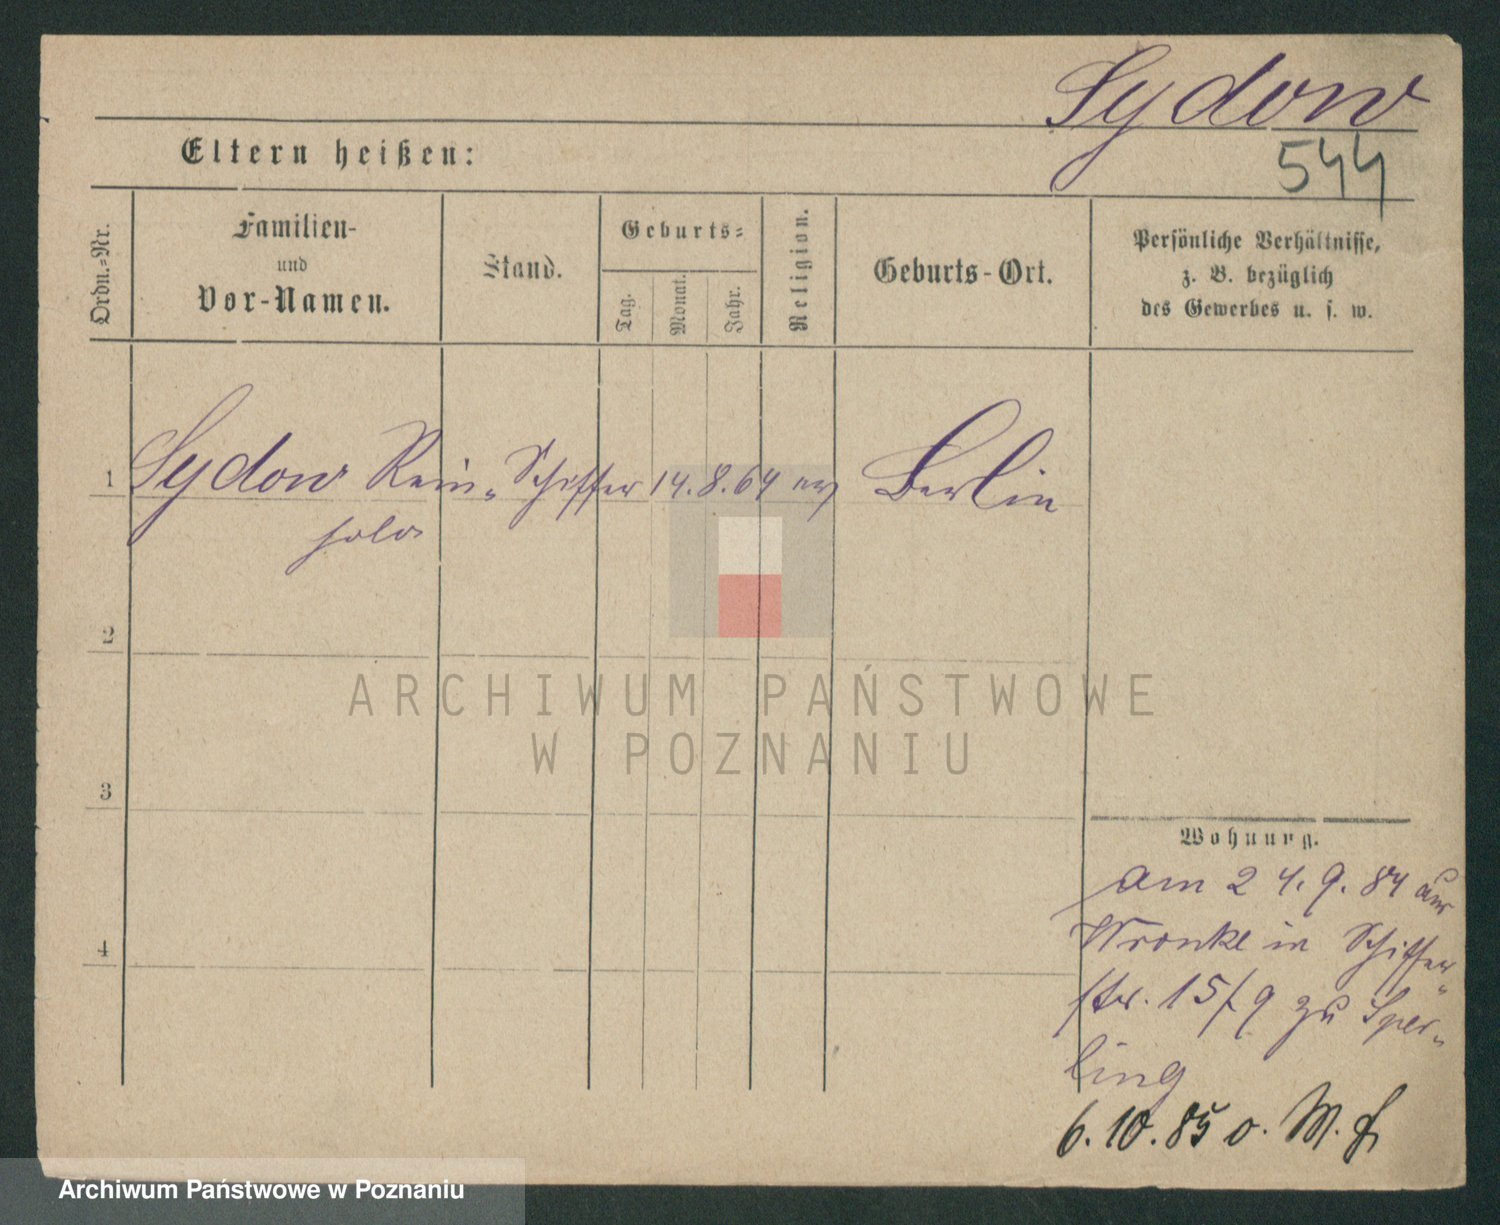 Sydow
544
Eltern heißen:
Ordn.-Nr.
Familien-
und
Vor-Namen.
Stand.
Geburts-
Tag.
Monat.
Jahr.
Religion.
Geburts-Ort.
Persönliche Verhältnisse,
z. B. bezüglich
des Gewerbes u. s. w.
1 Sydow Rein- Schiffer 14. 8. 64 ev Berlin
hold
2
ARCHIWUM PAŃSTWOWE
W POZNANIU
3
Wohnung.
am 24. 9. 84 aus
4
Wronke in Schiffer-
str. 15/9 zu Sper-
ling
6. 10. 85 o. W.
Archiwum Państwowe w Poznaniu